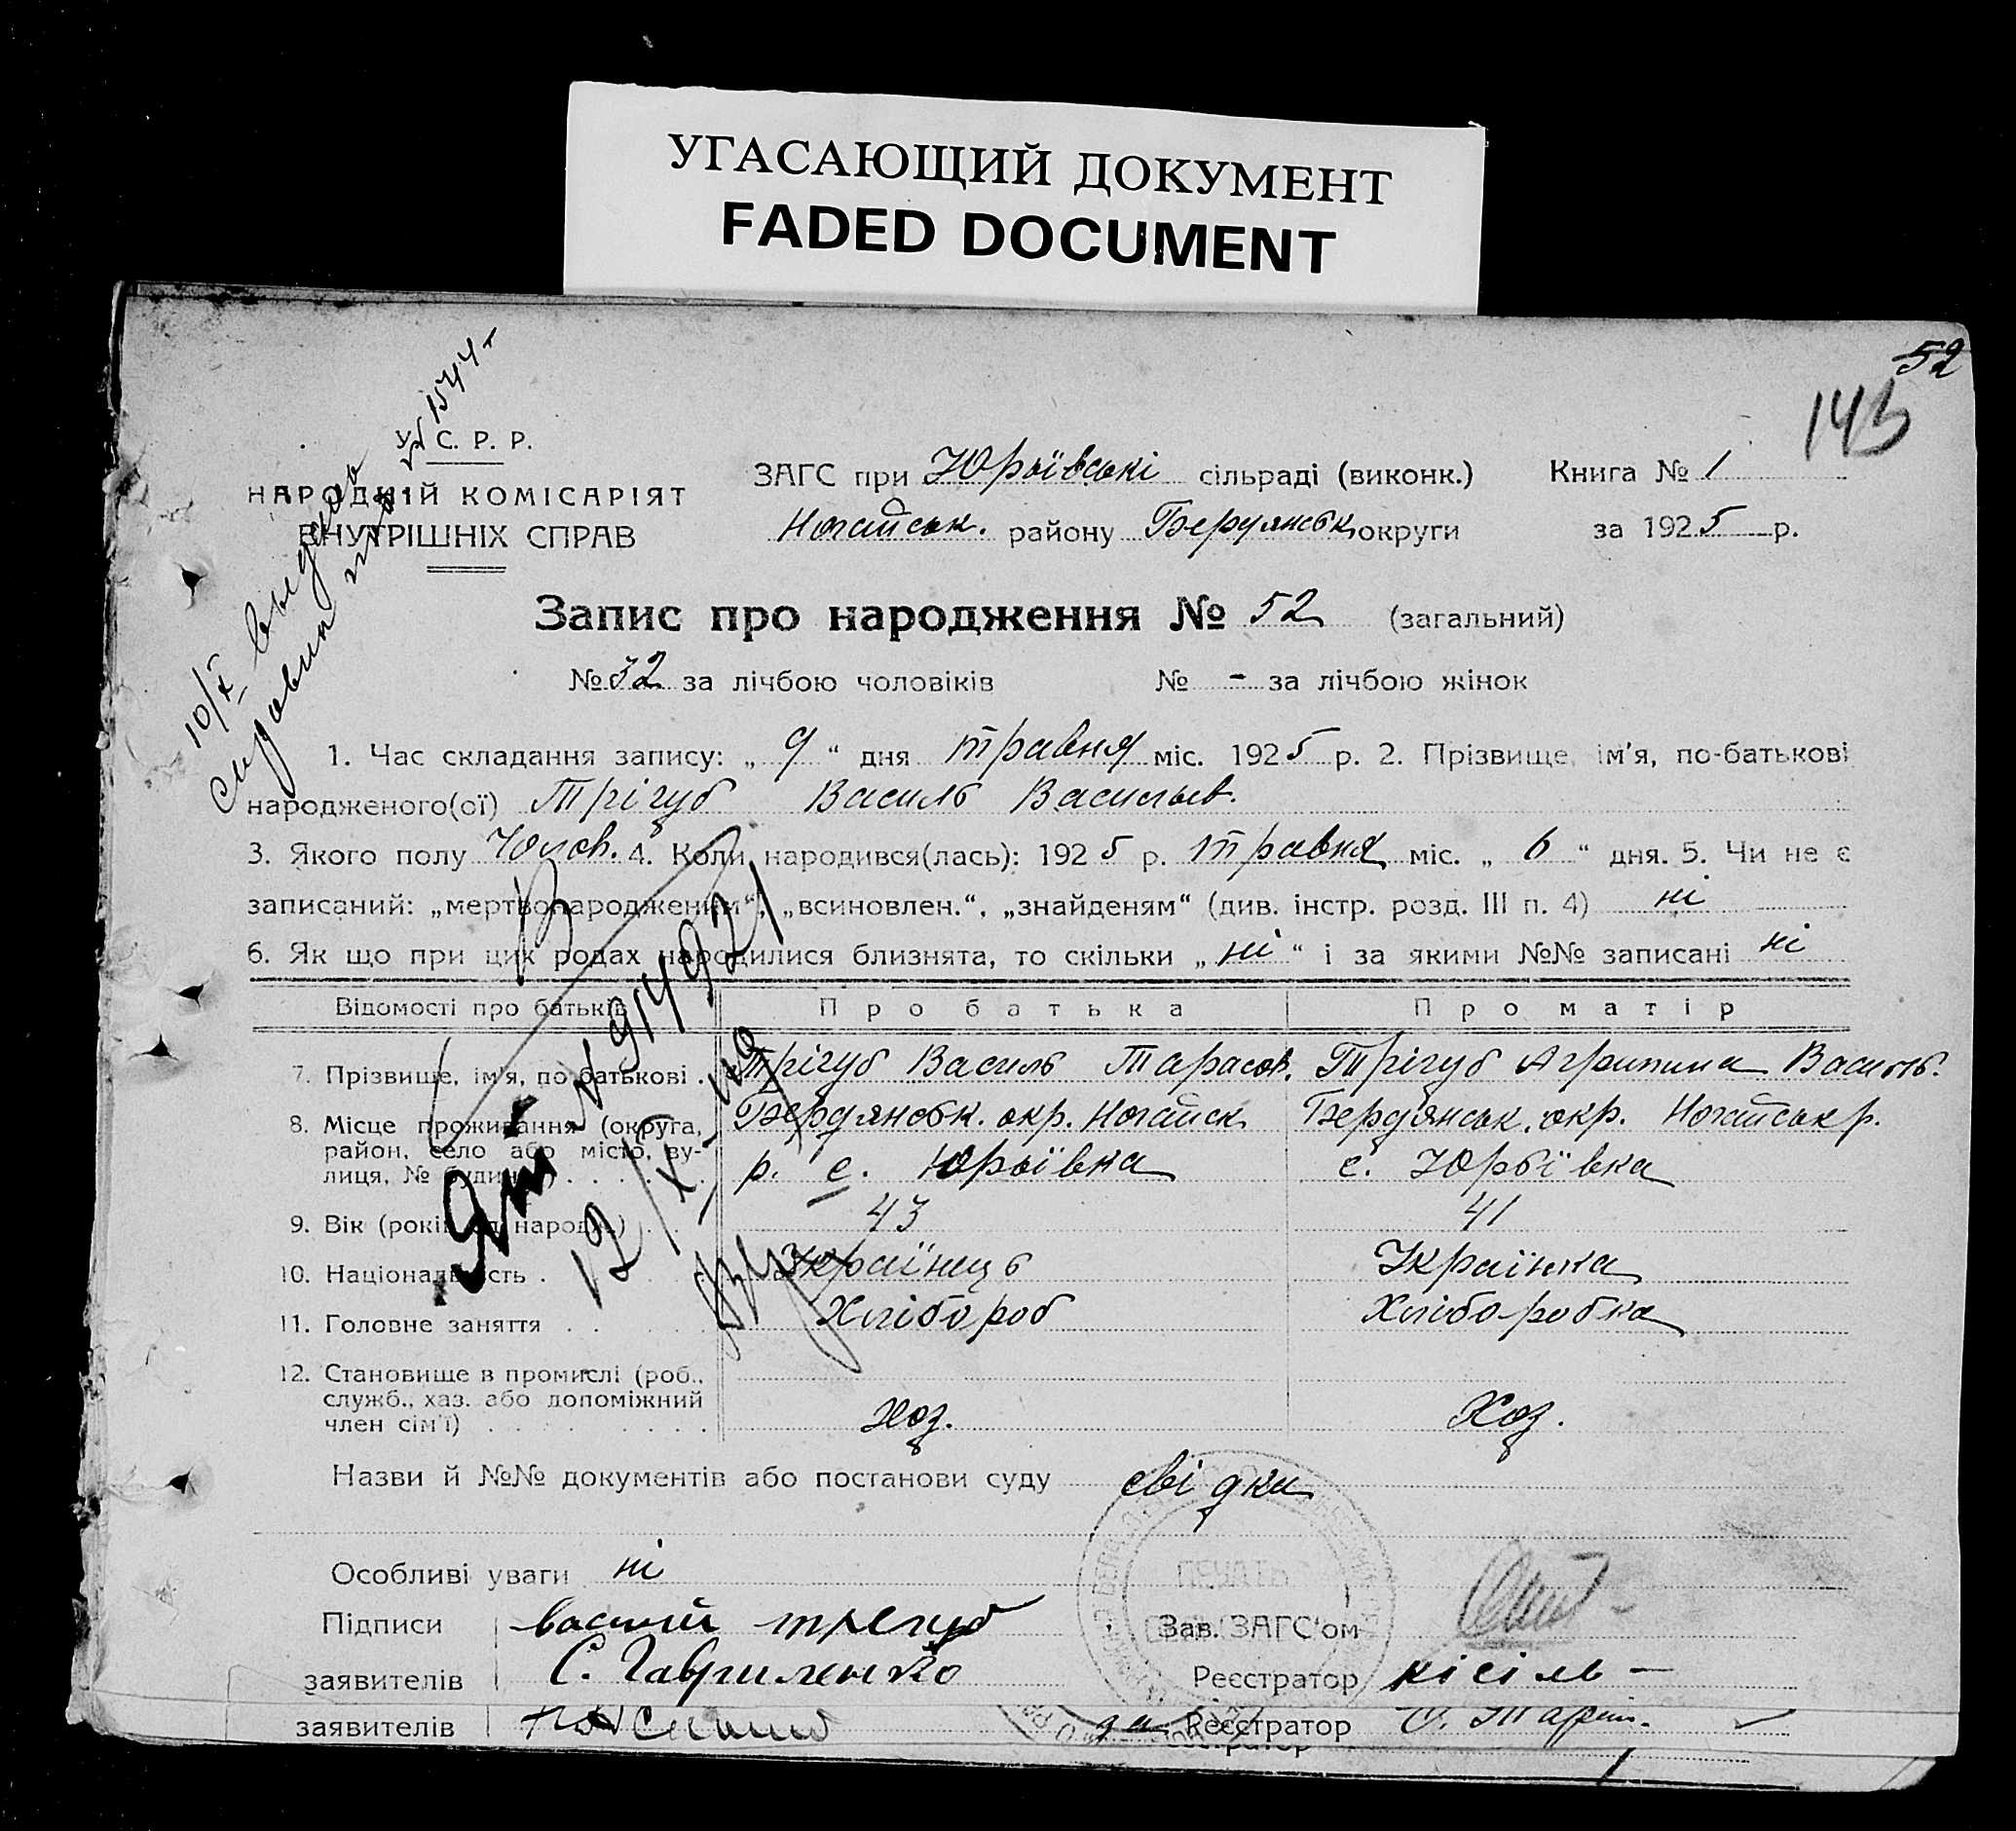 УГАСАЮЩИЙ ДОКУМЕНТ
FADED DOCUMENT
52
143
№ 1544
У. С. Р. Р.
НАРОДНІЙ КОМІСАРІЯТ
ВНУТРІШНІХ СПРАВ
ЗАГС при Юрьївські сільраді (виконк.) Книга № 1
Ногайськ. району Бердянськ округи за 1925 р.
Запис про народження № 52 (загальний)
№ 32 за лічбою чоловіків № - за лічбою жінок
10/X
1. Час складання запису: „ 9 “ дня травня міс. 1925 р. 2. Прізвище, ім'я, по-батькові
народженого(ої) Трігуб Василь Васильев.
3. Якого полу Чолов. 4. Коли народився(лась): 1925 р. травня міс. „ 6 “ дня. 5. Чи не є
записаний: „мертвонародженим“, „всиновлен.“, „знайденям“ (див. інстр. розд. III п. 4) ні
6. Як що при цих родах народилися близнята, то скільки „ ні “ і за якими №№ записані ні
Відомості про батьків Про батька Про матір
7. Прізвище, ім'я, по батькові . Трігуб Василь Тарасов. Трігуб Агрипина Василь.
8. Місце проживання (округа, Бердянськ. окр. Ногайск Бердянськ. окр. Ногайськ р.
район, село або місто, ву- р. с. Юрьївка с. Юрьївка
лиця, № будинку) . . . . . .
9. Вік (років від народж.) . . . 43 41
10. Національність . Українець Українка
11. Головне заняття . . . Хлібороб Хліборобка
12. Становище в промислі (роб.,
служб., хаз. або допоміжний Хоз. Хоз.
член сім'ї) . . . . . . . .
№ 914921
12/X
Назви й №№ документів або постанови суду свідки
Особливі уваги ні
ПЕЧАТЬ
Підписи василй трегуб Зав. ЗАГС'ом
заявителів С. Гавриленко Реєстратор кісіль -
заявителів за Реєстратор